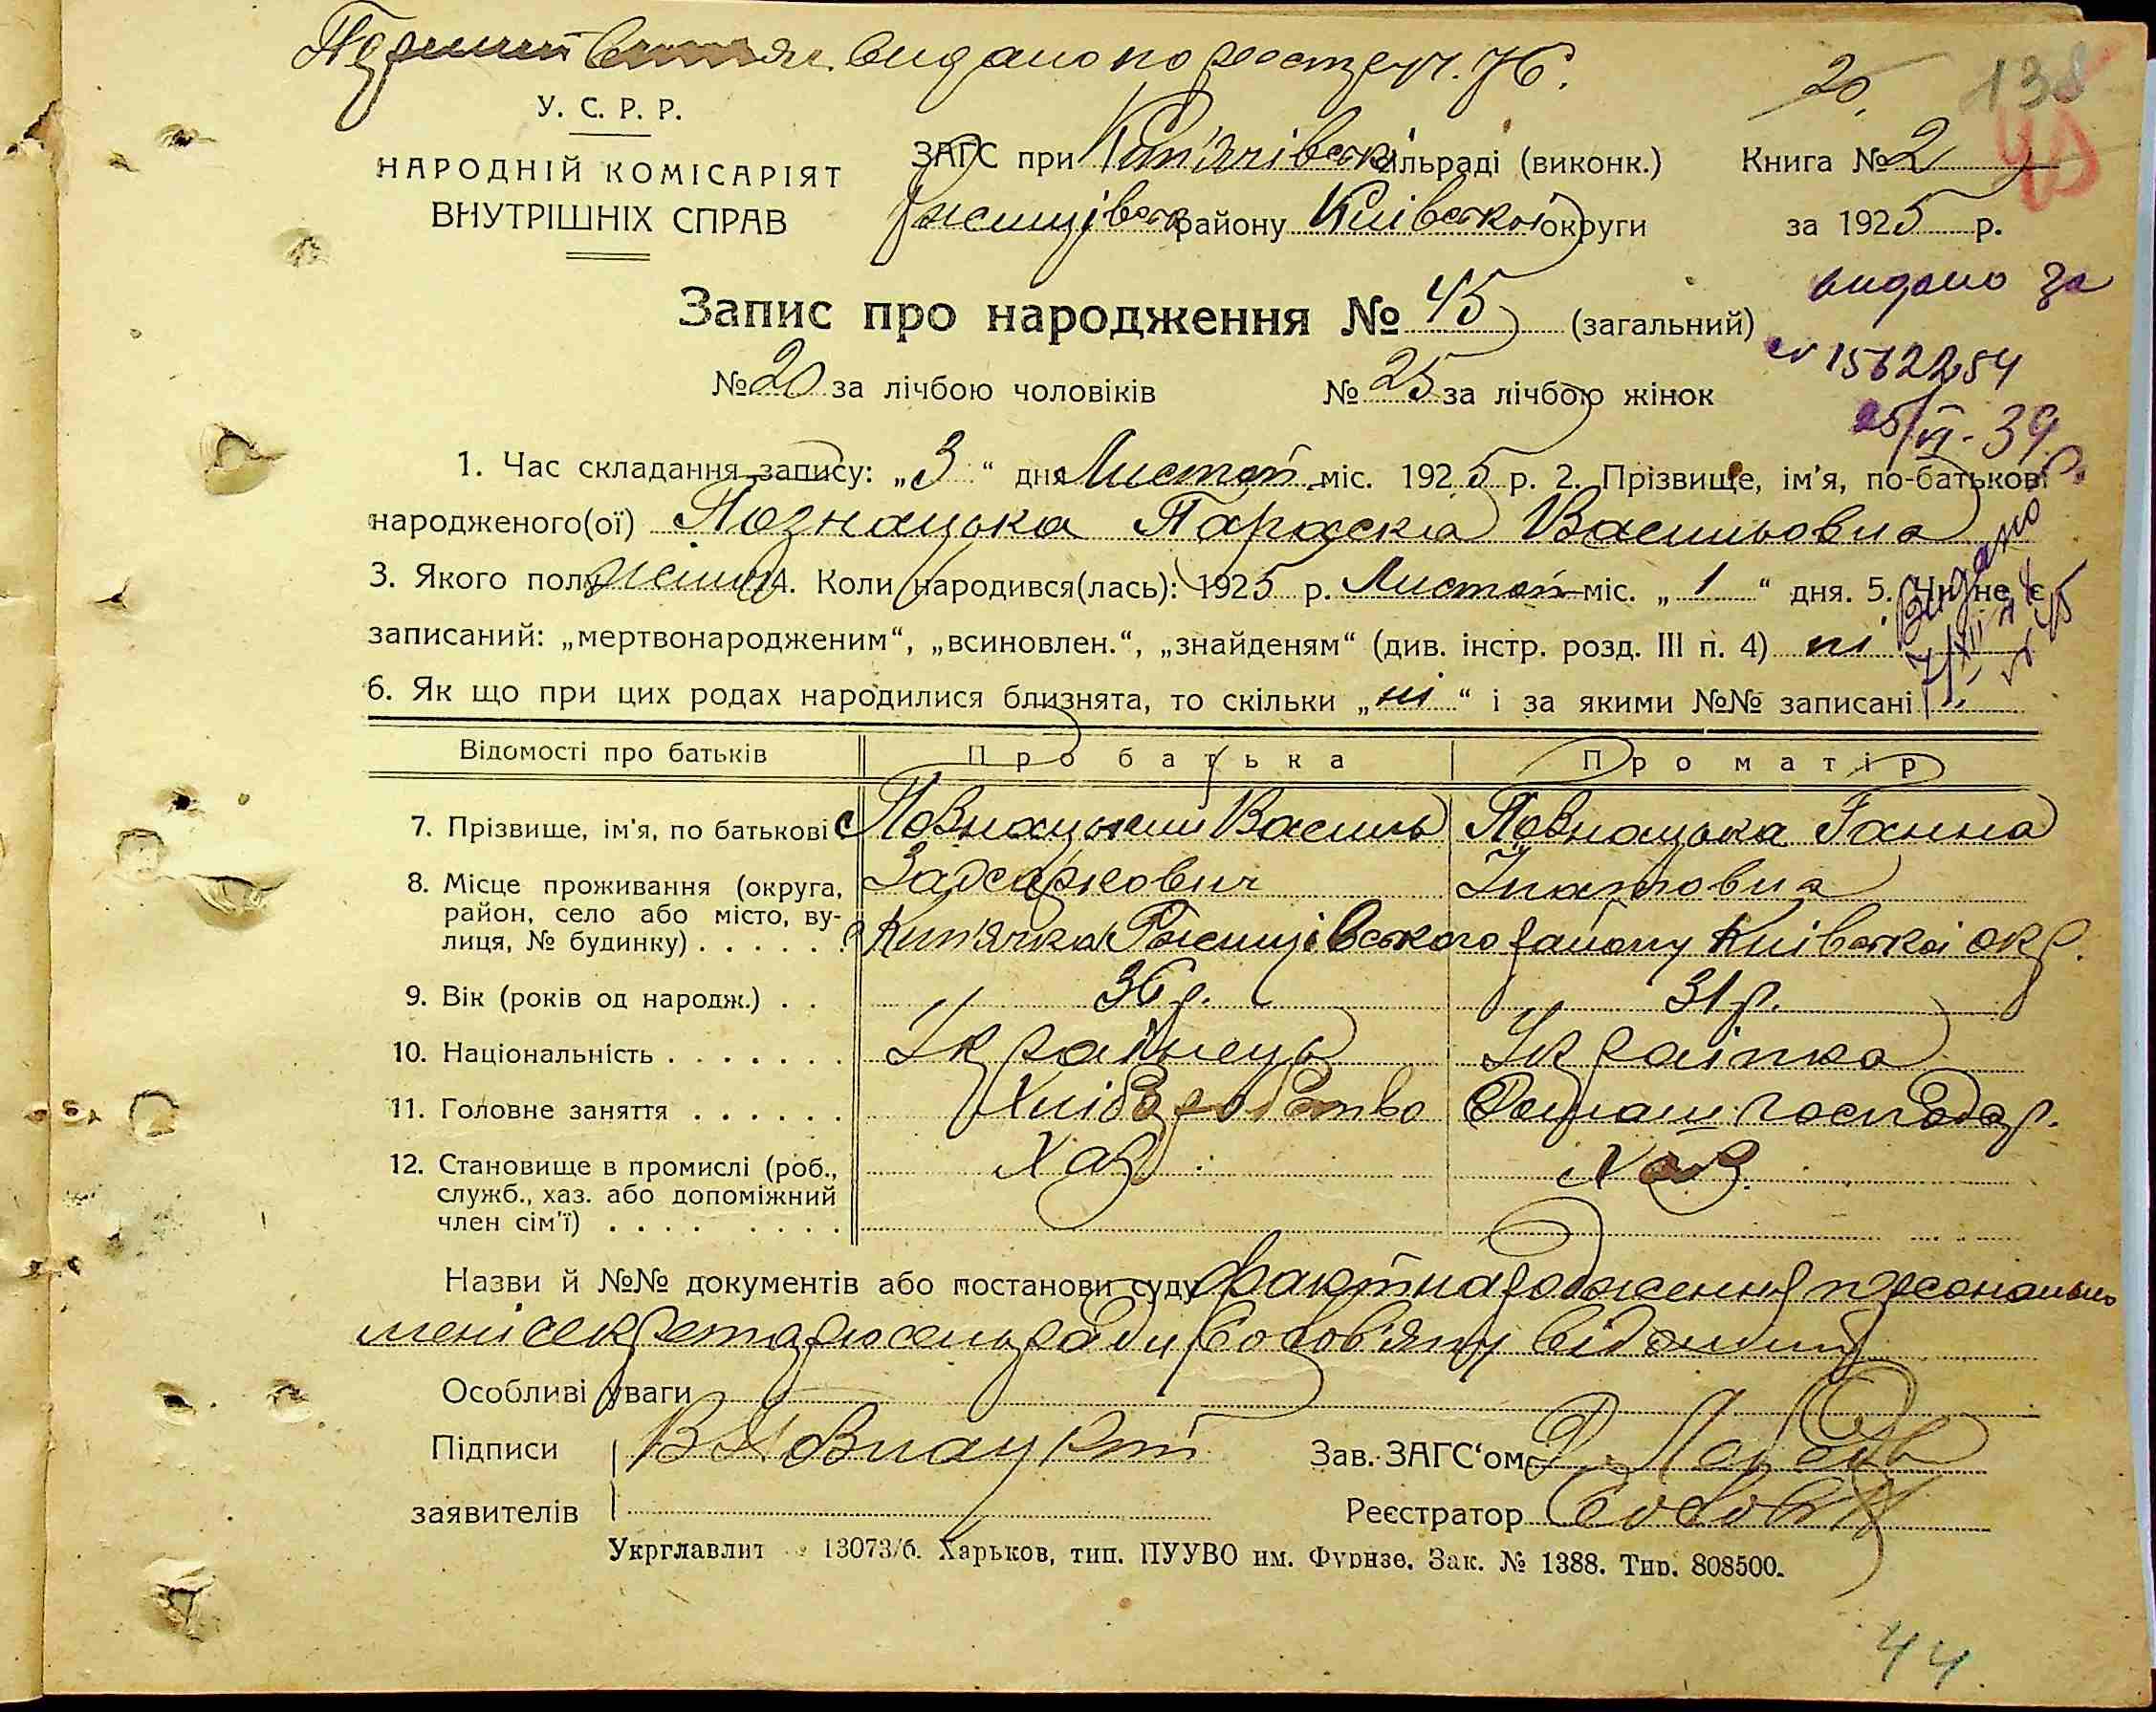 Перший витяг видано по реєстру ч. 76.
20. 138
У. С. Р. Р.
НАРОДНІЙ КОМІСАРІЯТ
ВНУТРІШНІХ СПРАВ
ЗАГС при Кип'ячівськ сільраді (виконк.) Книга № 2
Ржищівськ району Київської округи за 1925 р.
видано за
Запис про народження № 45 (загальний)
№ 1562254
№ 20 за лічбою чоловіків № 25 за лічбою жінок
25/VI-39 р.
1. Час складання запису: „3“ дня Листоп. міс. 1925 р. 2. Прізвище, ім'я, по-батькові
народженого(ої) Познацька Параска Васильовна
3. Якого полу жіноч. 4. Коли народився(лась): 1925 р. Листоп. міс. „1“ дня. 5. Чи не є
записаний: „мертвонародженим“, „всиновлен.“, „знайденям“ (див. інстр. розд. III п. 4) ні
Видано
6. Як що при цих родах народилися близнята, то скільки „ні“ і за якими №№ записані
Відомості про батьків Про батька Про матір
7. Прізвище, ім'я, по батькові Повнацький Василь Повнацька Ганна
Захаркович Ігнатовна
8. Місце проживання (округа,
район, село або місто, ву-
лиця, № будинку) . . . . . . с. Кип'ячка Ржищівського району Київської окр.
9. Вік (років од народж.) . . 36 р. 31 р.
10. Національність . . . . . . . Українець Українка
11. Головне заняття . . . . . . Хліборобство Домашн. господар.
12. Становище в промислі (роб.,
служб., хаз. або допоміжний
член сім'ї) . . . . . . . . Хаз. Хаз.
Назви й №№ документів або постанови суду факт народження персонально
мені секретарю сельради Соловьяну відомий
Особливі уваги
Підписи В Повнацкий Зав. ЗАГС'ом Лебедь
заявителів Реєстратор
Укрглавлит 13073/б. Харьков, тип. ПУУВО им. Фрунзе. Зак. № 1388. Тир. 808500.
44